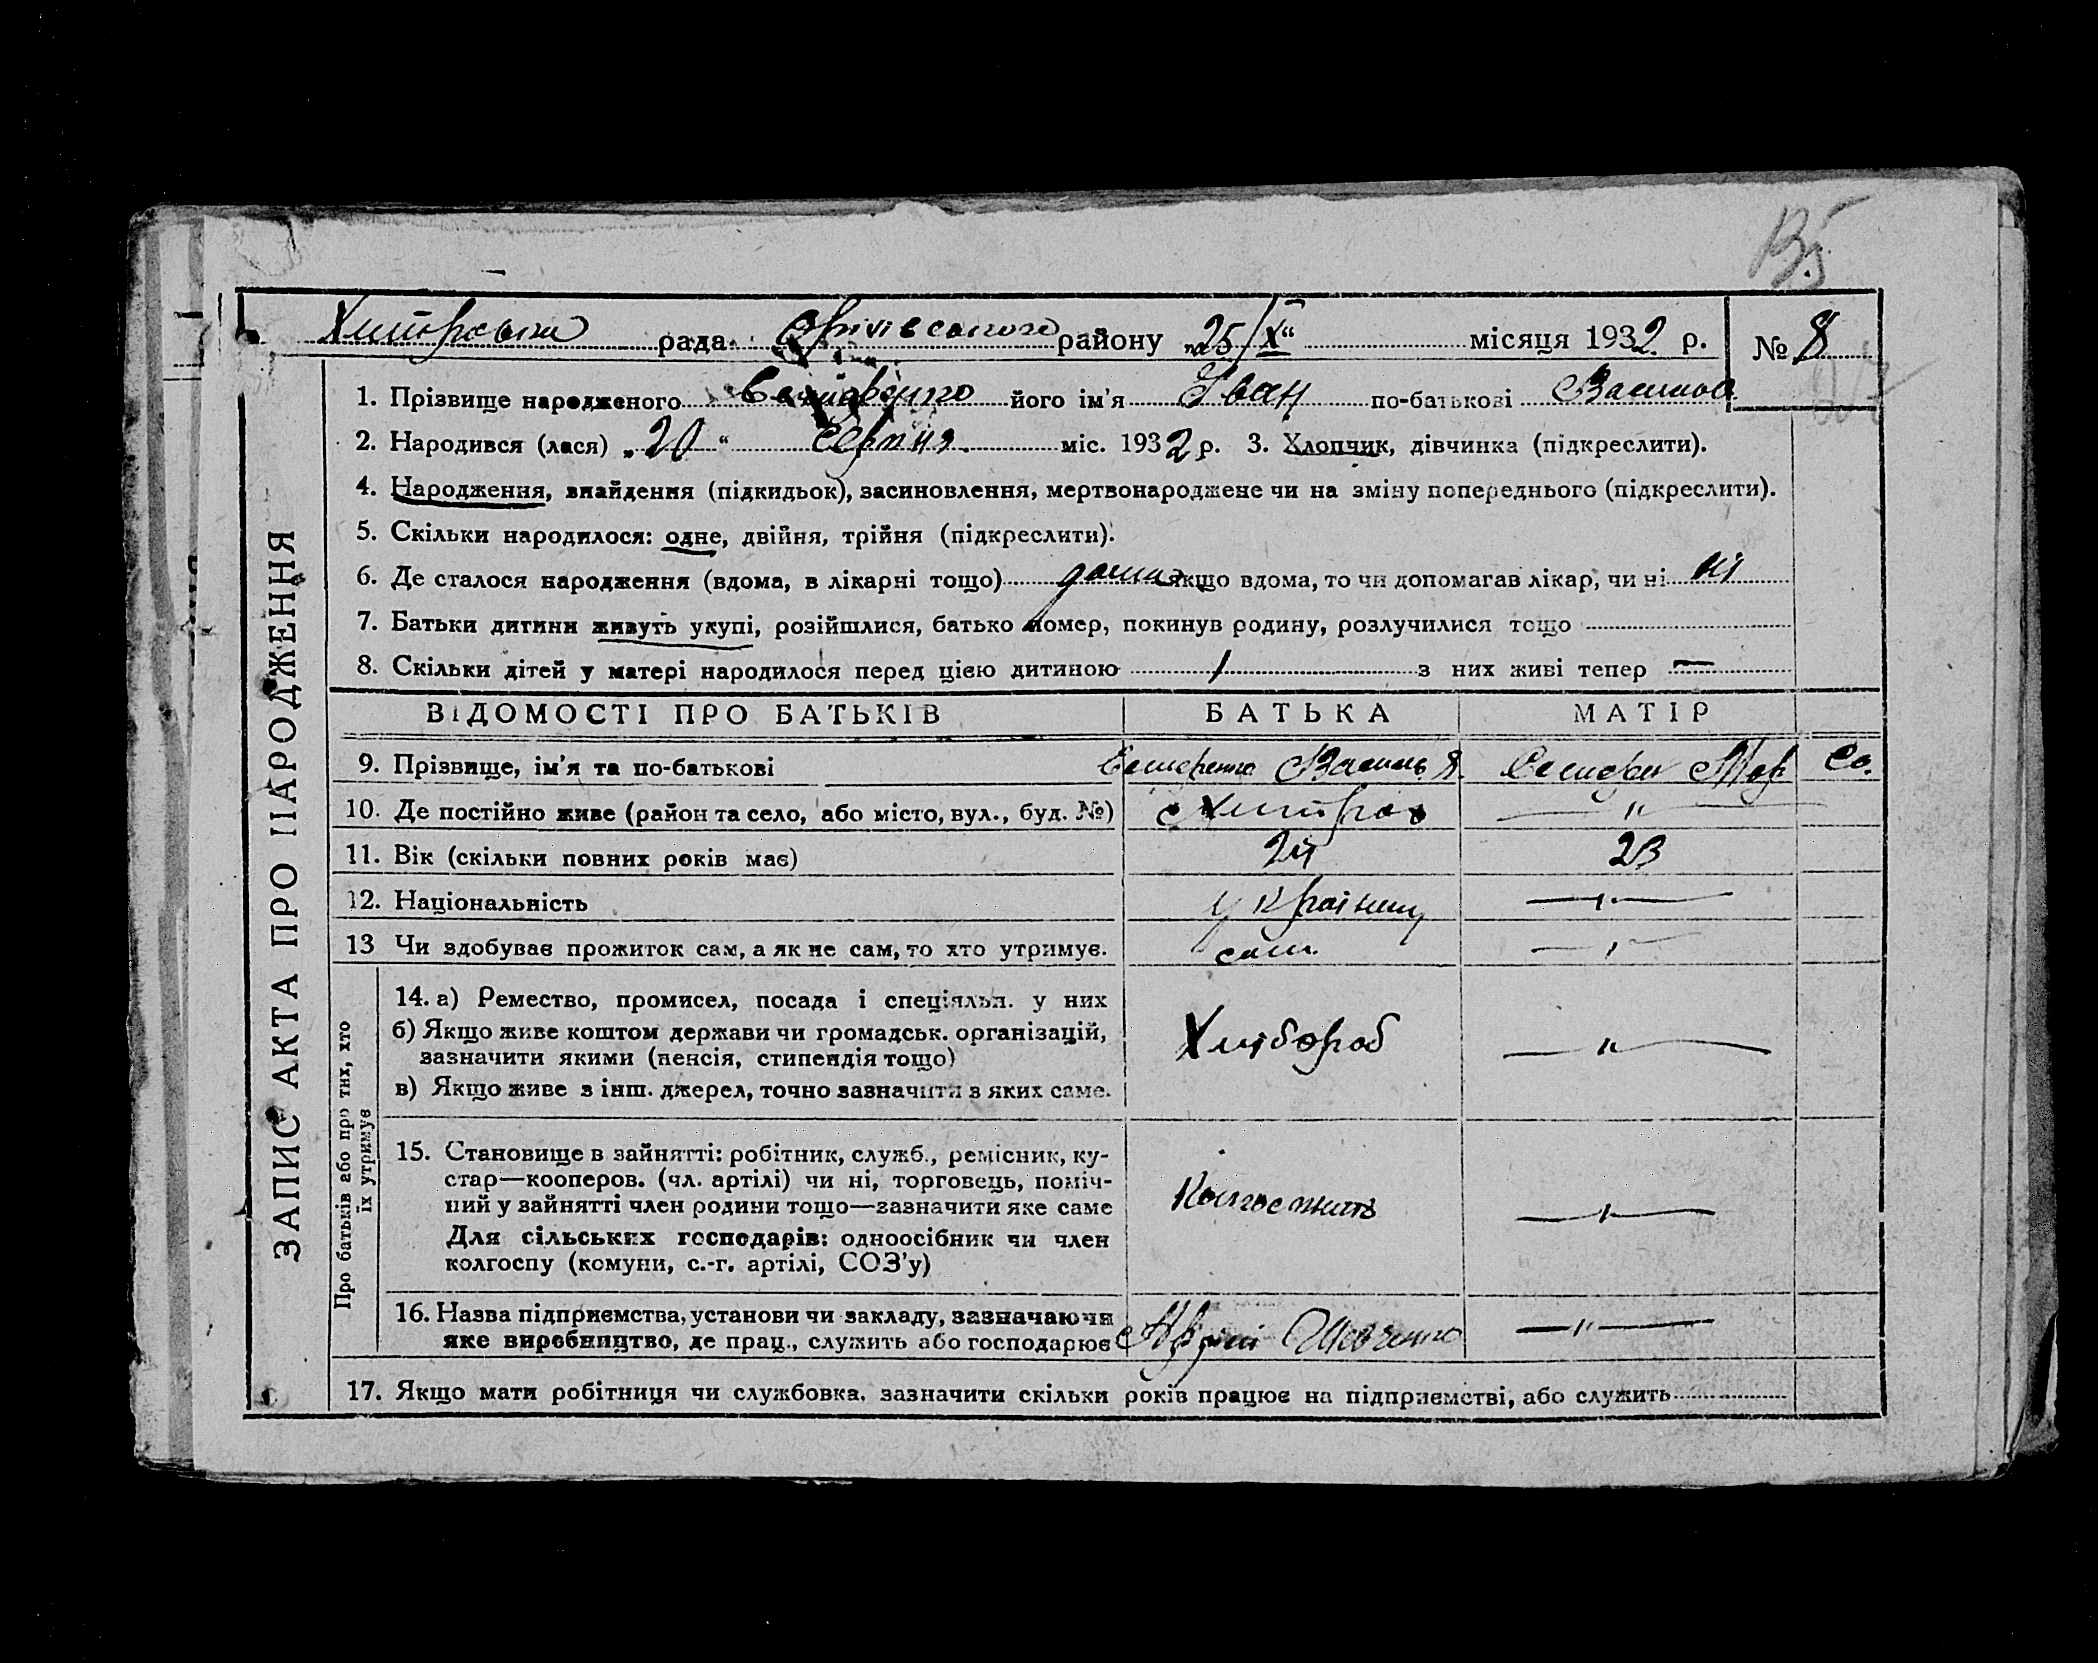 рада району „25/X“ місяця 1932 р. № 8
1. Прізвище народженого його ім'я Іван по-батькові
2. Народився (лася) „20“ Серпня міс. 1932 р. 3. Хлопчик, дівчинка (підкреслити).
4. Народження, знайдення (підкидьок), засиновлення, мертвонароджене чи на зміну попереднього (підкреслити).
5. Скільки народилося: одне, двійня, трійня (підкреслити).
6. Де сталося народження (вдома, в лікарні тощо) дома якщо вдома, то чи допомагав лікар, чи ні ні
7. Батьки дитини живуть укупі, розійшлися, батько помер, покинув родину, розлучилися тощо
8. Скільки дітей у матері народилося перед цією дитиною 1 з них живі тепер —
ВІДОМОСТІ ПРО БАТЬКІВ БАТЬКА МАТІР
9. Прізвище, ім'я та по-батькові Василь Я.
10. Де постійно живе (район та село, або місто, вул., буд. №) — " —
11. Вік (скільки повних років має) 24 23
12. Національність — " —
13 Чи здобуває прожиток сам, а як не сам, то хто утримує. сам — " —
14. а) Ремество, промисел, посада і спеціяльн. у них
б) Якщо живе коштом держави чи громадськ. організацій,
зазначити якими (пенсія, стипендія тощо) Хлібороб — " —
в) Якщо живе з інш. джерел, точно зазначити з яких саме.
15. Становище в зайнятті: робітник, служб., ремісник, ку-
стар—кооперов. (чл. артілі) чи ні, торговець, поміч-
ний у зайнятті член родини тощо—зазначити яке саме — " —
Для сільських господарів: одноосібник чи член
колгоспу (комуни, с.-г. артілі, СОЗ'у)
16. Назва підприємства, установи чи закладу, зазначаючи
яке виробництво, де прац., служить або господарює Шевченко — " —
17. Якщо мати робітниця чи службовка, зазначити скільки років працює на підприємстві, або служить
ЗАПИС АКТА ПРО НАРОДЖЕННЯ
Про батьків або про тих, хто
їх утримує